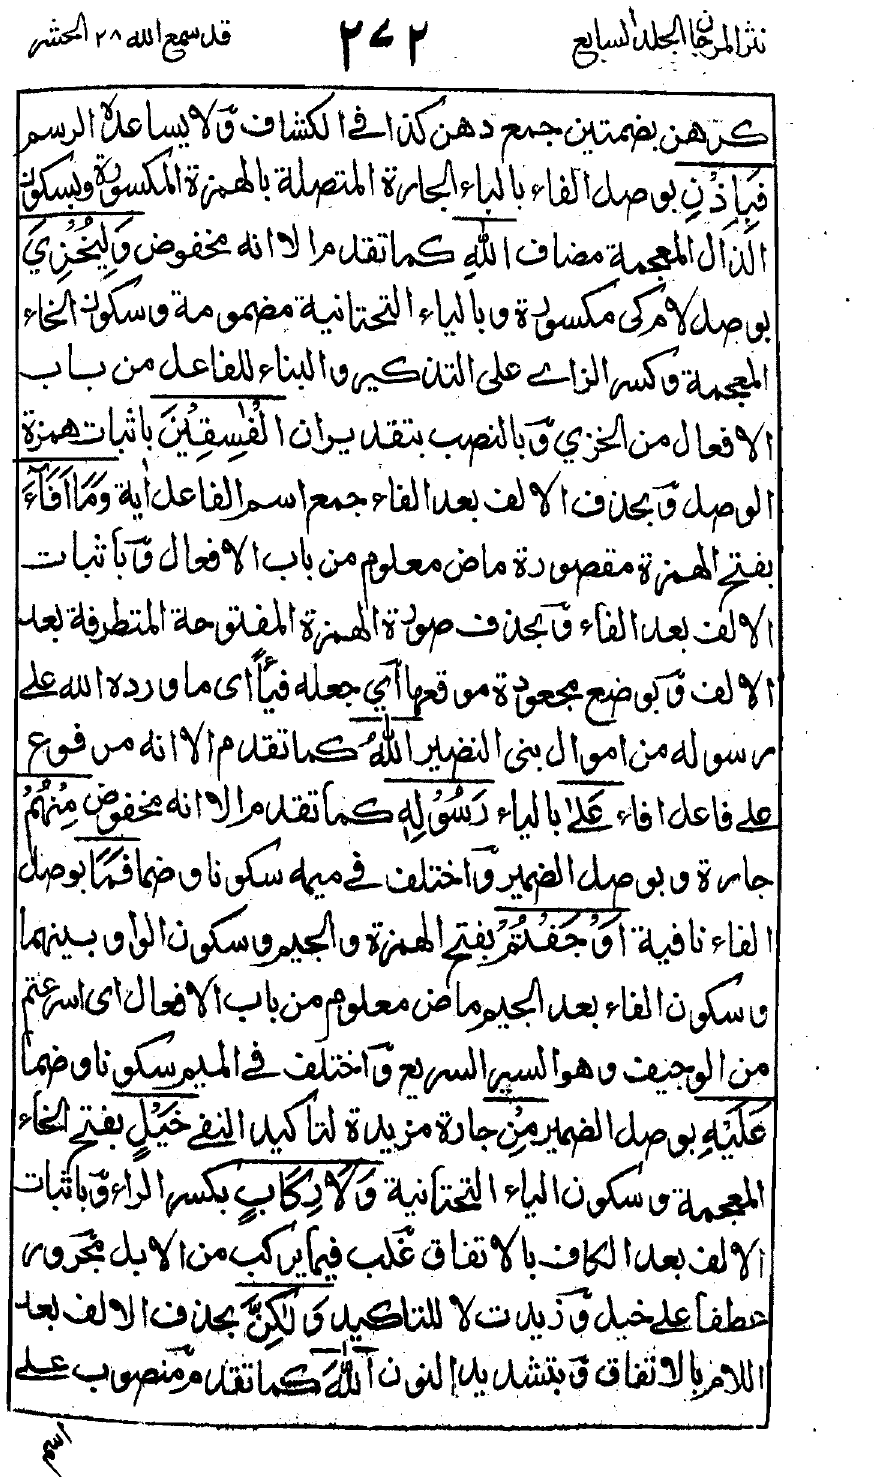 نثر المرجان الجلد السابع
٢٧٢
قد سمع الله ٢٨ الحشر
كرهن بضمتين جمع دهن كذا في الكشاف وّلا يساعده الرسم
فَبِاِذْنِ بوصل الفاء بالباء الجارة المتصلة بالهمزة المكسورة وبسكون
الذال المعجمة مضاف اللّٰهِ كما تقدم الا انه مخفوض وَلِيُخْزِيَ
بوصل لام كى مكسورة وبالياء التحتانية مضمومة وسكون الخاء
المعجمة وكسر الزاے على التذكير والبناء للفاعل من باب
الافعال من الخزي وّبالنصب بتقدير ان الْفٰسِقِيْنَ باثبات همزة
الوصل وّبحذف الالف بعد الفاء جمع اسم الفاعل اٰية وَمَا اَفَآءَ
بفتح الهمزة مقصورة ماض معلوم من باب الافعال وّباثبات
الالف بعد الفاء وّبحذف صورة الهمزة المفتوحة المتطرفة بعد
الالف وّبوضع مجعودة موقعها اَي جعله فيأً اى ما ورده الله على
رسوله من اموال بنى النضير اللّٰهُ كما تقدم الا انه مرفوع
على فاعل افاء عَلٰى بالياء رَسُوْلِهٖ كما تقدم الا انه مخفوض مِنْهُمْ
جارة وبوصل الضمير وّاختلف في ميمه سكونا وضما فَمَا بوصل
الفاء نافية اَوْجَفْتُمْ بفتح الهمزة والجيم وسكون الواو بينهما
وسكون الفاء بعد الجيم ماض معلوم من باب الافعال اى اسرعتم
من الوجيف وهو السير السريع وّاختلف في الميم سكونا وضما
عَلَيْهِ بوصل الضمير مِنْ جارة مزيدة لتاكيد النفي خَيْلٍ بفتح الخاء
المعجمة وسكون الياء التحتانية وَلَا رِكَابٍ بكسر الراء وّباثبات
الالف بعد الكاف بالاتفاق غلب فيما يركب من الابل مجرور
عطفا على خيل وّزيدت لا للتاكيد وَلٰكِنَّ بحذف الالف بعد
اللام بالاتفاق وّبتشديد النون اللّٰهَ كما تقدم منصوب على
اسم